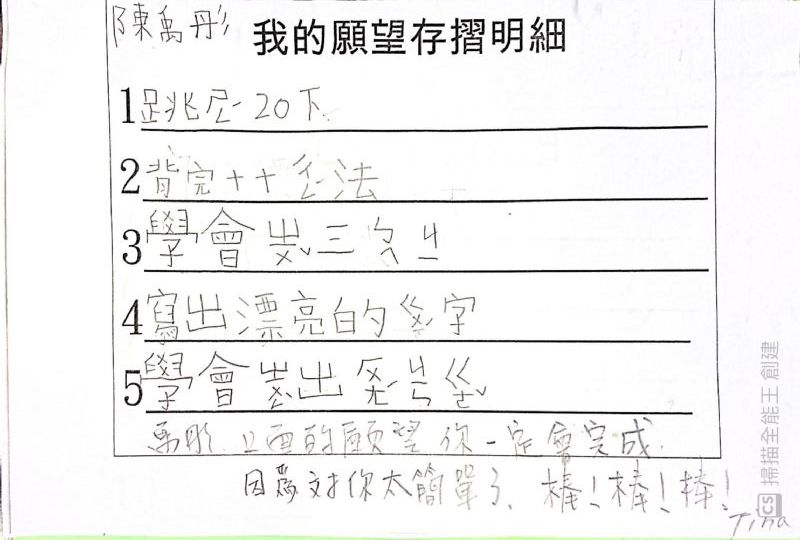 陳禹彤
我的願望存摺明細
1 跳ㄕㄥˊ20下
2 背完++ㄔㄥˊ法
3 學會
4 寫出漂亮的ㄍㄨㄛˊ字
5 學會
禹彤 上面的願望你一定會完成.
因為對你太簡單了、棒!棒!棒!
Tina
CS 掃描全能王 創建